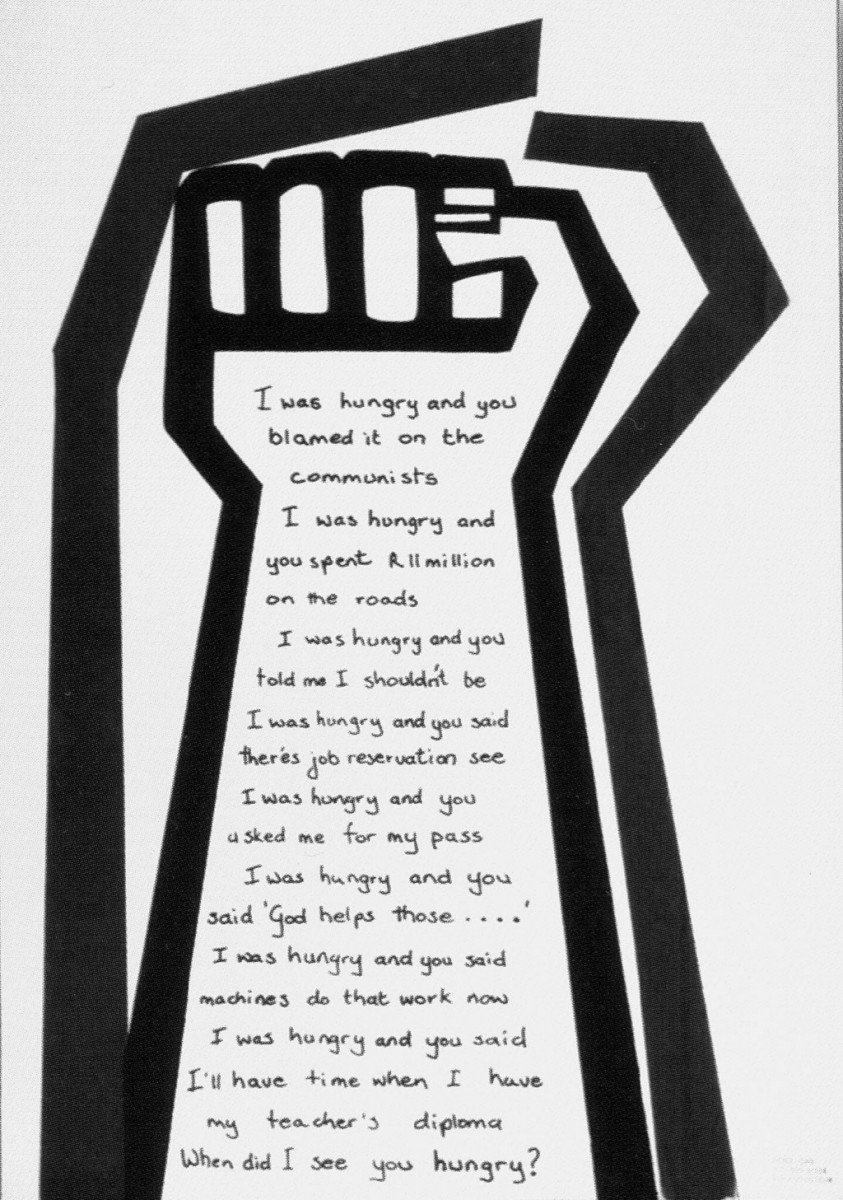 I was hungry and you
blamed it on the
communists
I was hungry and
you spent R11million
on the roads
I was hungry and you
told me I shouldn't be
I was hungry and you said
there's job reservation see
I was hungry and you
asked me for my pass
I was hungry and you
said 'God helps those ....'
I was hungry and you said
machines do that work now
I was hungry and you said
I'll have time when I have
my teacher's diploma
When did I see you hungry?